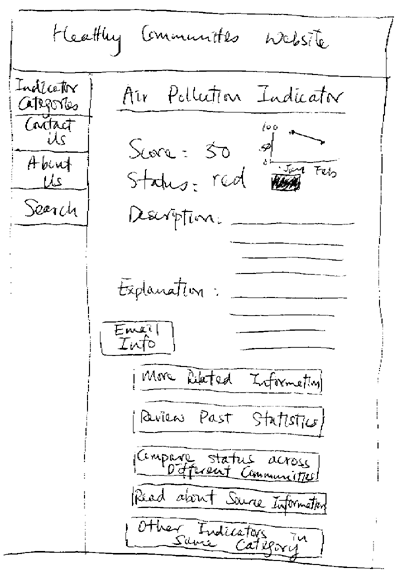 Healthy Communities Website
Indicator
Categories
Contact
Us
About
Us
Search
Air Pollution Indicator
Score: 50
Status: red
100
50
0
Jan Feb
Description:
Explanation:
Email
Info
More Related Information
Review Past Statistics
Compare status across
Different Communities
Read about Source Information
Other Indicators in
Same Category